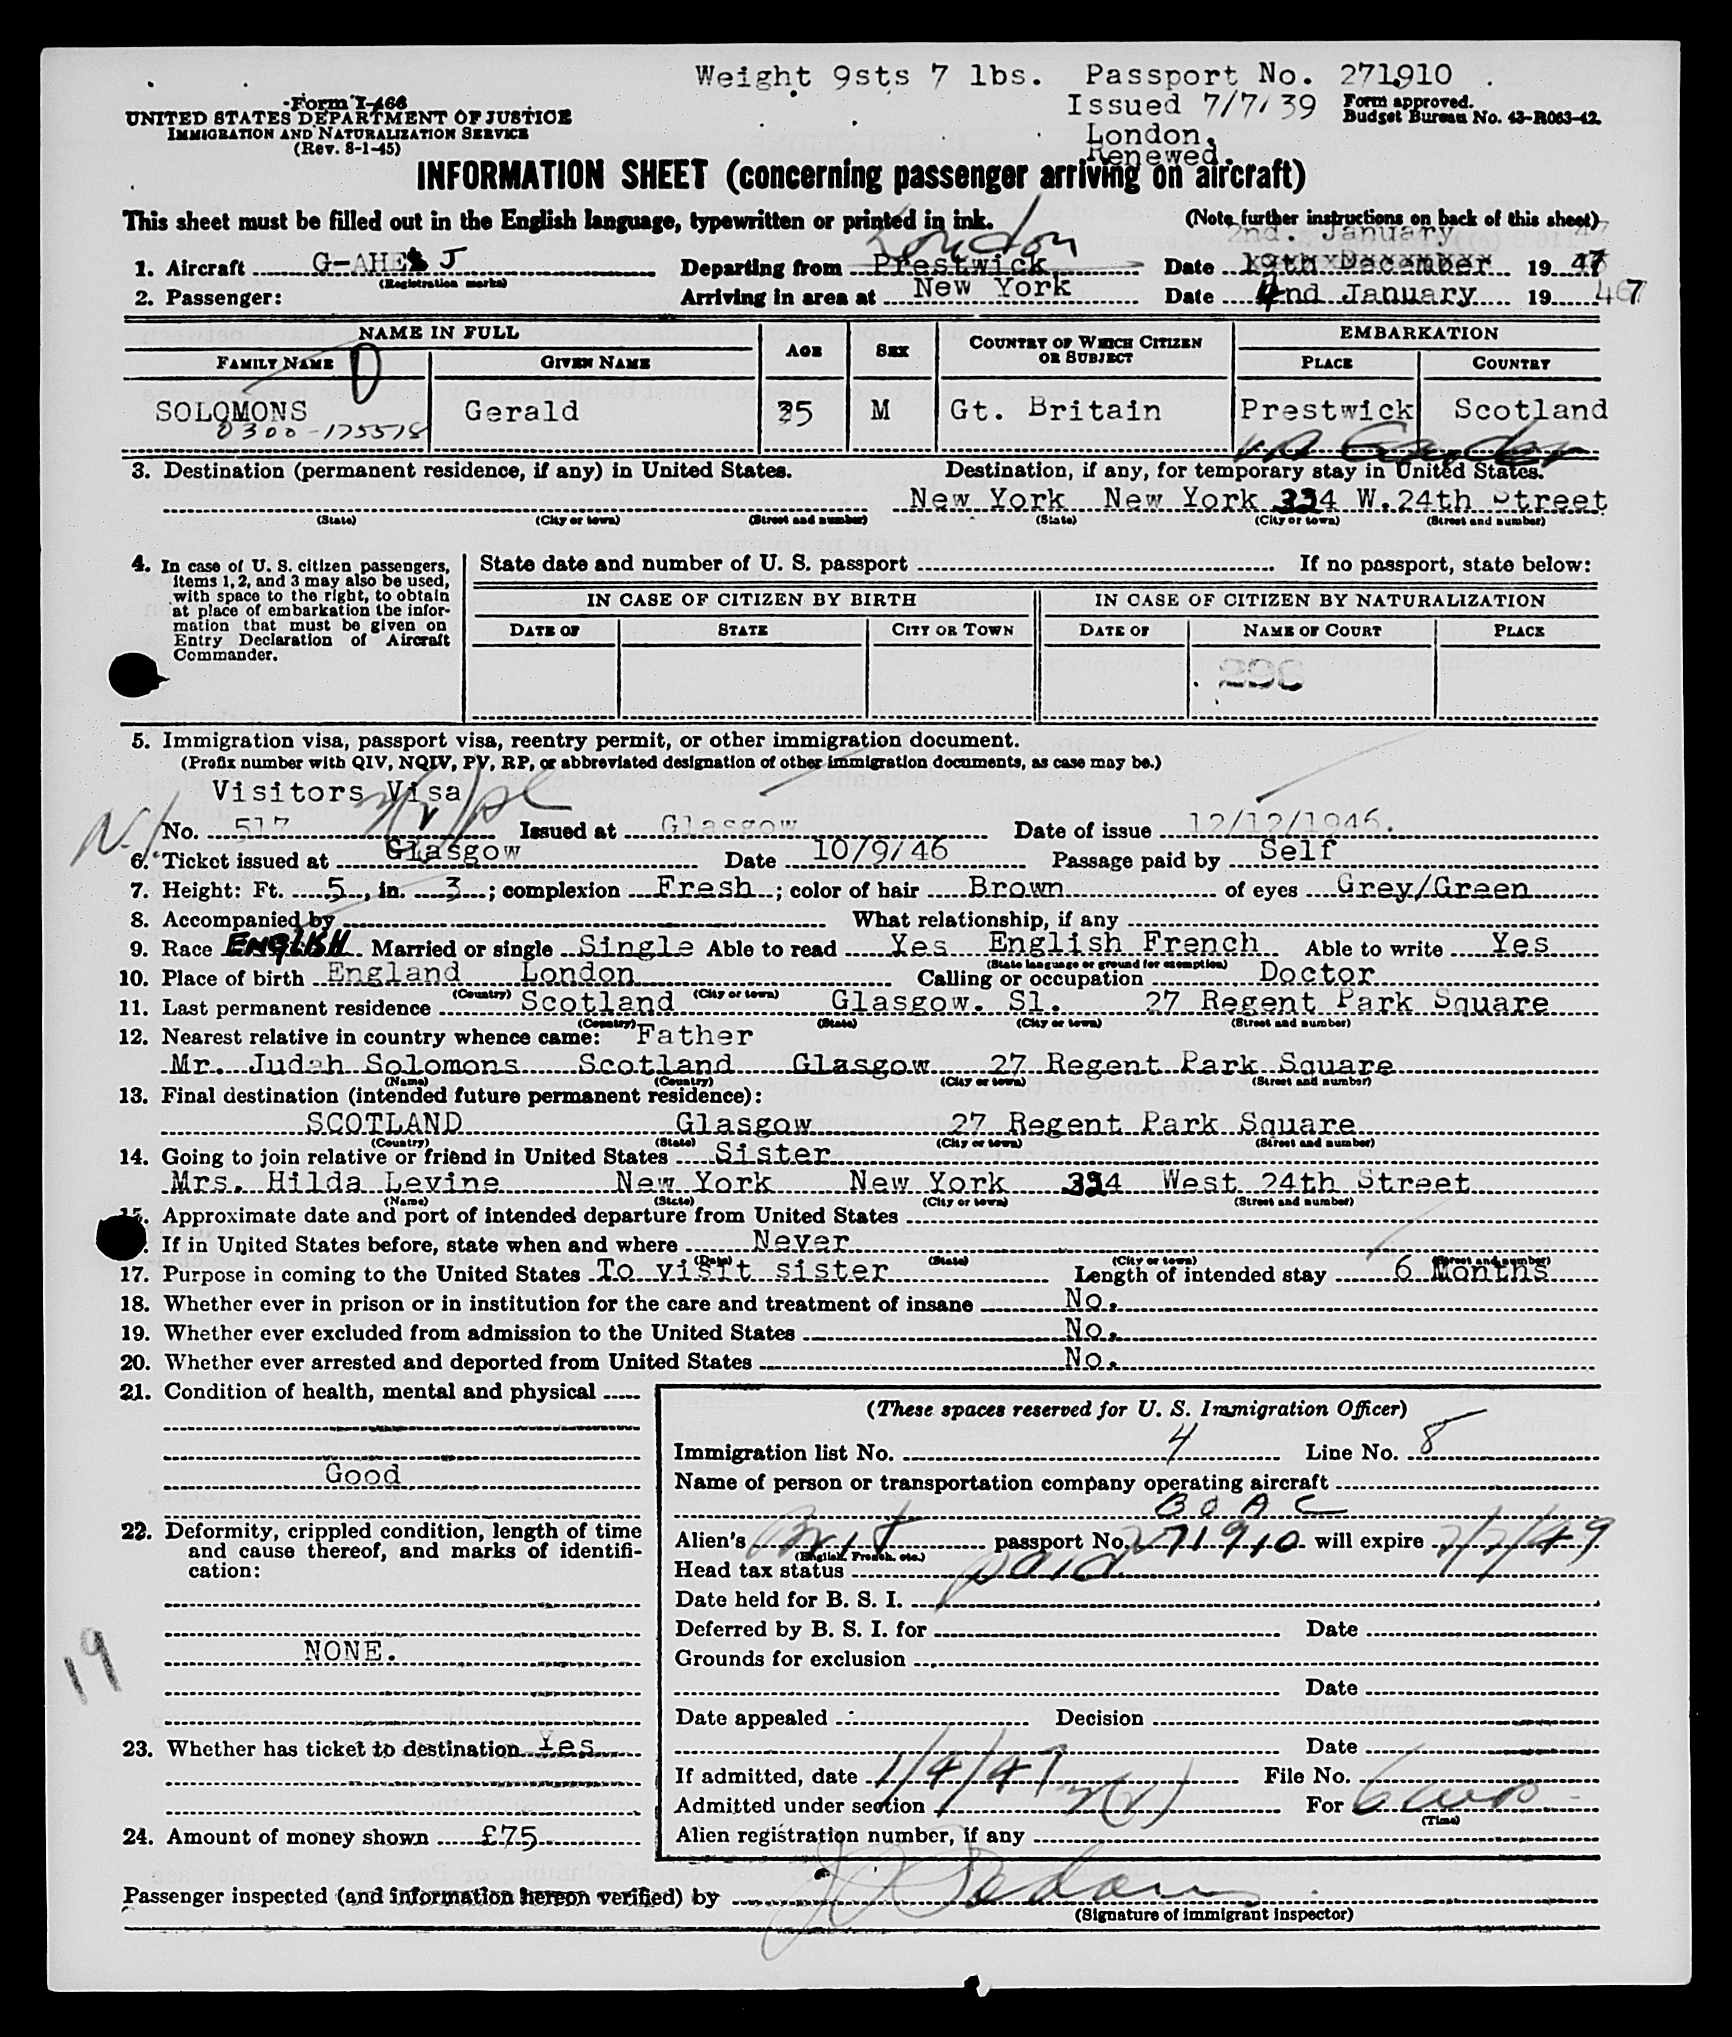 Weight 9sts 7 lbs. Passport No. 271910
Form I-466
UNITED STATES DEPARTMENT OF JUSTICE
IMMIGRATION AND NATURALIZATION SERVICE
(Rev. 8-1-45)
Issued 7/7/39
London.
Renewed.
Form approved.
Budget Bureau No. 43-R063-42.
INFORMATION SHEET (concerning passenger arriving on aircraft)
This sheet must be filled out in the English language, typewritten or printed in ink.
(Note further instructions on back of this sheet)
London 2nd. January 47
1. Aircraft G-AHE J Departing from Prestwick Date 19th December 1947
(Registration marks)
2. Passenger: Arriving in area at New York Date 4nd January 19 467
NAME IN FULL AGE SEX COUNTRY OF WHICH CITIZEN OR SUBJECT EMBARKATION
FAMILY NAME GIVEN NAME PLACE COUNTRY
SOLOMONS Gerald 35 M Gt. Britain Prestwick Scotland
0300-175578
3. Destination (permanent residence, if any) in United States. Destination, if any, for temporary stay in United States.
New York New York 334 W.24th Street
(State) (City or town) (Street and number) (State) (City or town) (Street and number)
4. In case of U. S. citizen passengers, items 1, 2, and 3 may also be used, with space to the right, to obtain at place of embarkation the information that must be given on Entry Declaration of Aircraft Commander.
State date and number of U. S. passport If no passport, state below:
IN CASE OF CITIZEN BY BIRTH IN CASE OF CITIZEN BY NATURALIZATION
DATE OF STATE CITY OR TOWN DATE OF NAME OF COURT PLACE
290
5. Immigration visa, passport visa, reentry permit, or other immigration document.
(Prefix number with QIV, NQIV, PV, RP, or abbreviated designation of other immigration documents, as case may be.)
Visitors Visa
No. 517 Issued at Glasgow Date of issue 12/12/1946.
6. Ticket issued at Glasgow Date 10/9/46 Passage paid by Self
7. Height: Ft. 5, in. 3; complexion Fresh; color of hair Brown of eyes Grey/Green
8. Accompanied by What relationship, if any
9. Race ENGLISH Married or single Single Able to read Yes English French Able to write Yes
(State language or ground for exemption)
10. Place of birth England London Calling or occupation Doctor
(Country) (City or town)
11. Last permanent residence Scotland Glasgow. S1. 27 Regent Park Square
(Country) (State) (City or town) (Street and number)
12. Nearest relative in country whence came: Father
Mr. Judah Solomons Scotland Glasgow 27 Regent Park Square
(Name) (Country) (City or town) (Street and number)
13. Final destination (intended future permanent residence):
SCOTLAND Glasgow 27 Regent Park Square
(Country) (State) (City or town) (Street and number)
14. Going to join relative or friend in United States Sister
Mrs. Hilda Levine New York New York 334 West 24th Street
(Name) (State) (City or town) (Street and number)
15. Approximate date and port of intended departure from United States
If in United States before, state when and where Never
(Date) (State) (City or town) (Street and number)
17. Purpose in coming to the United States To visit sister Length of intended stay 6 Months
18. Whether ever in prison or in institution for the care and treatment of insane No.
19. Whether ever excluded from admission to the United States No.
20. Whether ever arrested and deported from United States No.
21. Condition of health, mental and physical
Good
22. Deformity, crippled condition, length of time and cause thereof, and marks of identification:
NONE.
19
23. Whether has ticket to destination Yes
24. Amount of money shown £75
(These spaces reserved for U. S. Immigration Officer)
Immigration list No. 4 Line No. 8
Name of person or transportation company operating aircraft
B O A C
Alien's Brit passport No. 271910 will expire 7/7/49
(English, French, etc.)
Head tax status paid
Date held for B. S. I.
Deferred by B. S. I. for Date
Grounds for exclusion
Date
Date appealed Decision
Date
If admitted, date 1/4/47 File No.
Admitted under section 3(2) For 6 mos
(Time)
Alien registration number, if any
Passenger inspected (and information hereon verified) by
(Signature of immigrant inspector)